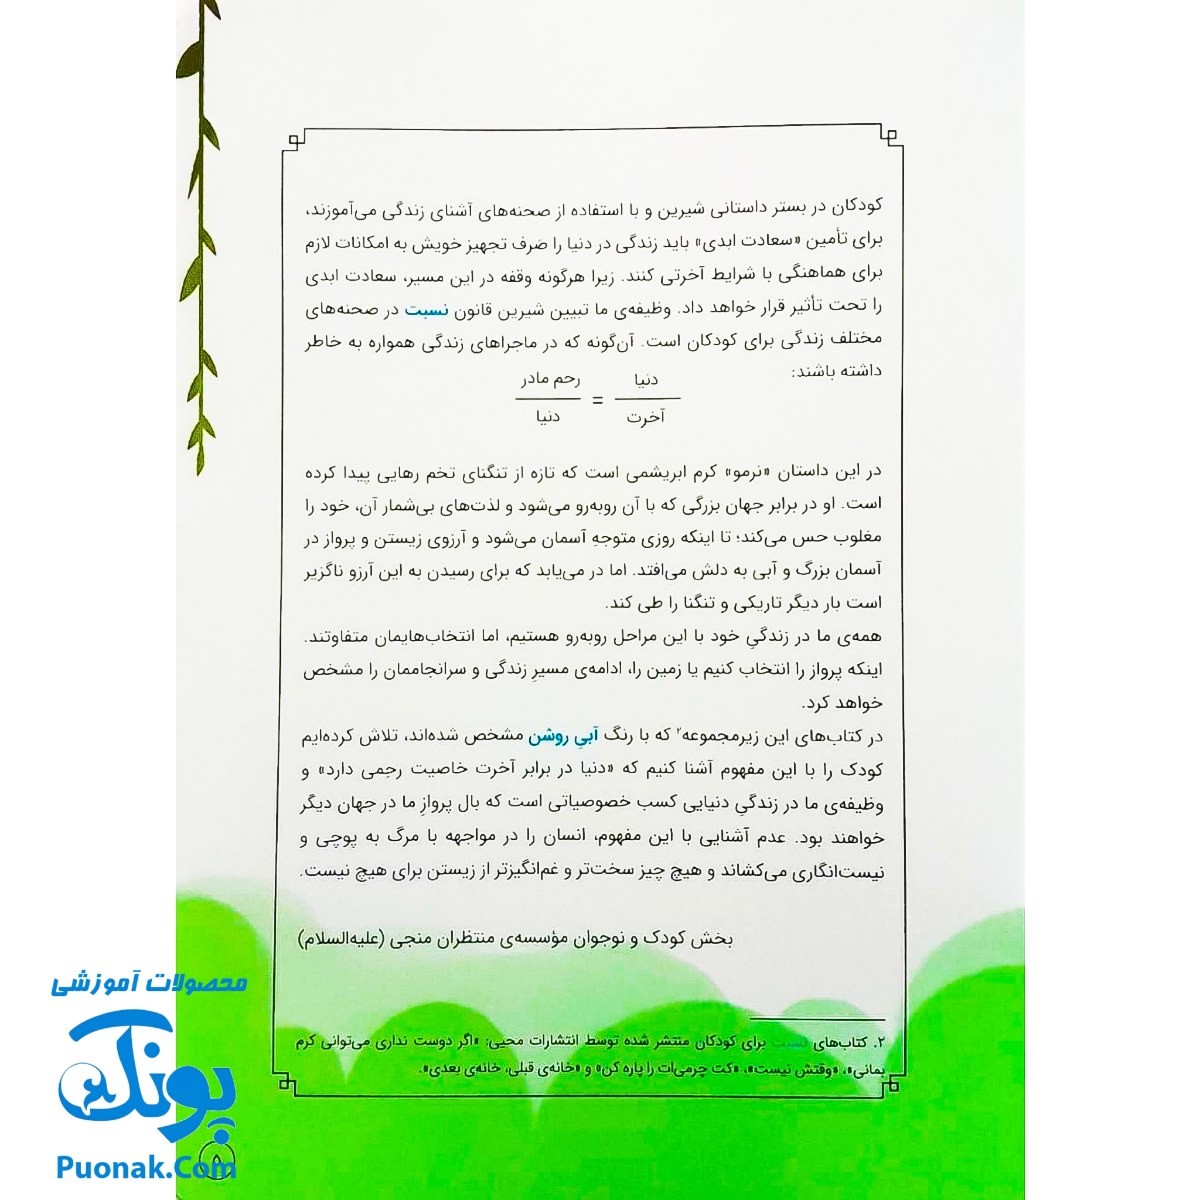 کودکان در بستر داستانی شیرین و با استفاده از صحنه‌های آشنای زندگی می‌آموزند،
برای تأمین «سعادت ابدی» باید زندگی در دنیا را صَرف تجهیز خویش به امکانات لازم
برای هماهنگی با شرایط آخرتی کنند. زیرا هرگونه وقفه در این مسیر، سعادت ابدی
را تحت تأثیر قرار خواهد داد. وظیفه‌ی ما تبیین شیرین قانون نسبت در صحنه‌های
مختلف زندگی برای کودکان است. آن‌گونه که در ماجراهای زندگی همواره به خاطر
داشته باشند:
دنیا / آخرت = رحم مادر / دنیا
در این داستان «نرمو» کرم ابریشمی است که تازه از تنگنای تخم رهایی پیدا کرده
است. او در برابر جهان بزرگی که با آن روبه‌رو می‌شود و لذت‌های بی‌شمار آن، خود را
مغلوب حس می‌کند؛ تا اینکه روزی متوجهِ آسمان می‌شود و آرزوی زیستن و پرواز در
آسمان بزرگ و آبی به دلش می‌افتد. اما در می‌یابد که برای رسیدن به این آرزو ناگزیر
است بار دیگر تاریکی و تنگنا را طی کند.
همه‌ی ما در زندگیِ خود با این مراحل روبه‌رو هستیم، اما انتخاب‌هایمان متفاوتند.
اینکه پرواز را انتخاب کنیم یا زمین را، ادامه‌ی مسیرِ زندگی و سرانجاممان را مشخص
خواهد کرد.
در کتاب‌های این زیرمجموعه۲ که با رنگ آبیِ روشن مشخص شده‌اند، تلاش کرده‌ایم
کودک را با این مفهوم آشنا کنیم که «دنیا در برابر آخرت خاصیت رحِمی دارد» و
وظیفه‌ی ما در زندگیِ دنیایی کسب خصوصیاتی است که بال پروازِ ما در جهان دیگر
خواهند بود. عدم آشنایی با این مفهوم، انسان را در مواجهه با مرگ به پوچی و
نیست‌انگاری می‌کشاند و هیچ چیز سخت‌تر و غم‌انگیزتر از زیستن برای هیچ نیست.
بخش کودک و نوجوان مؤسسه‌ی منتظران منجی (علیه‌السلام)
۲. کتاب‌های نسبت برای کودکان منتشر شده توسط انتشارات محیی: «اگر دوست نداری می‌توانی کرم
بمانی»، «وقتش نیست»، «کت چرمی‌ات را پاره کن» و «خانه‌ی قبلی، خانه‌ی بعدی».
محصولات آموزشی
پونک
Puonak.Com